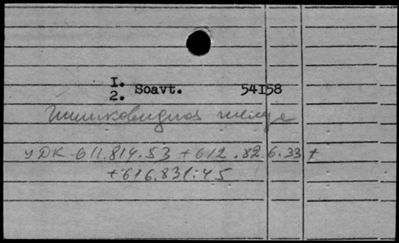 I.
2. Soavt. 54I58
УДК 611.814.53 + 612.826.33 +
+ 616.831.45